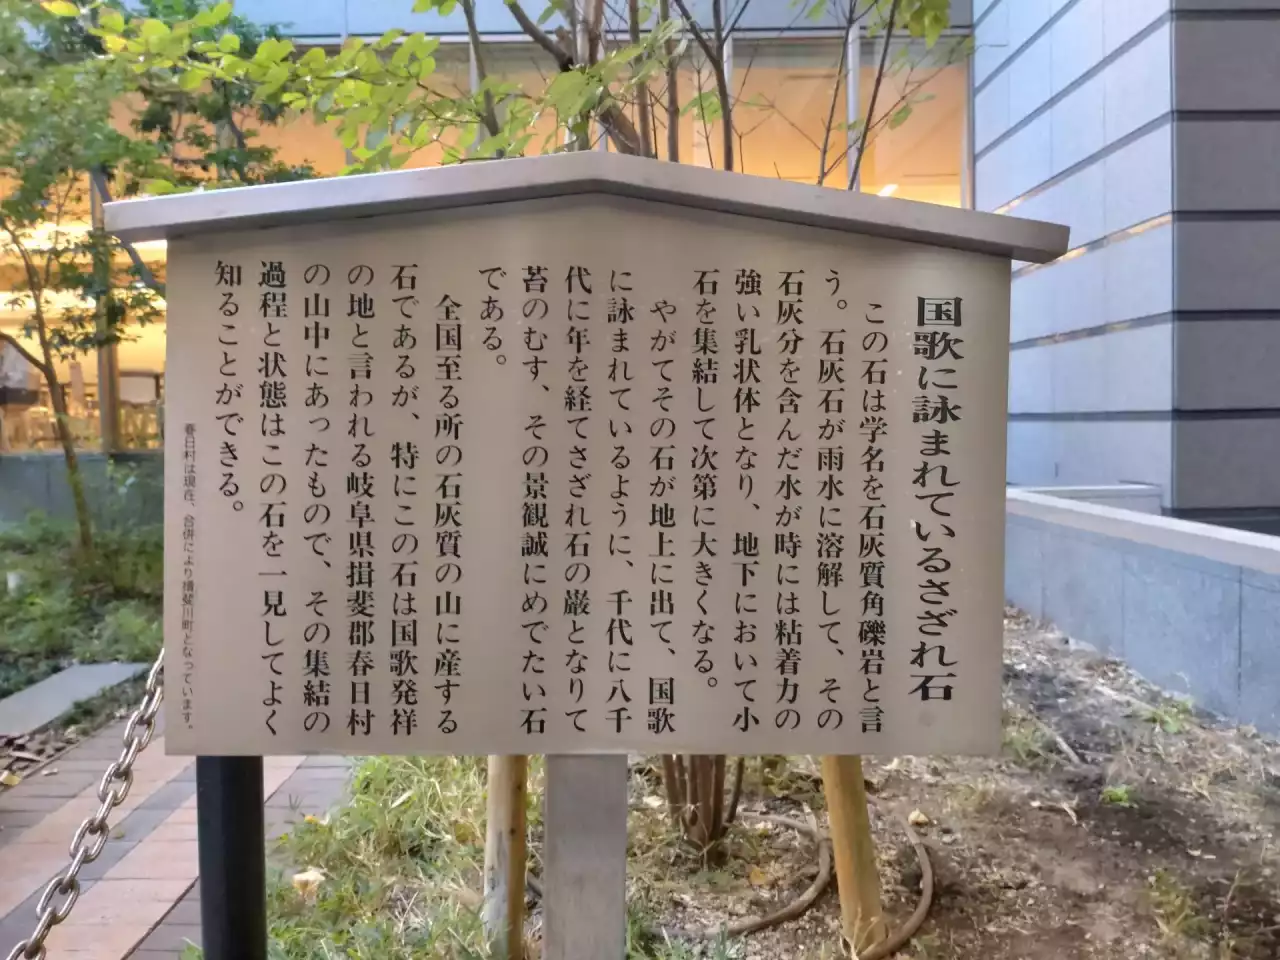 国歌に詠まれているさざれ石
この石は学名を石灰質角礫岩と言
う。石灰石が雨水に溶解して、その
石灰分を含んだ水が時には粘着力の
強い乳状体となり、地下において小
石を集結して次第に大きくなる。
やがてその石が地上に出て、国歌
に詠まれているように、千代に八千
代に年を経てさざれ石の巌となりて
苔のむす、その景観誠にめでたい石
である。
全国至る所の石灰質の山に産する
石であるが、特にこの石は国歌発祥
の地と言われる岐阜県揖斐郡春日村
の山中にあったもので、その集結の
過程と状態はこの石を一見してよく
知ることができる。
春日村は現在、合併により揖斐川町となっています。